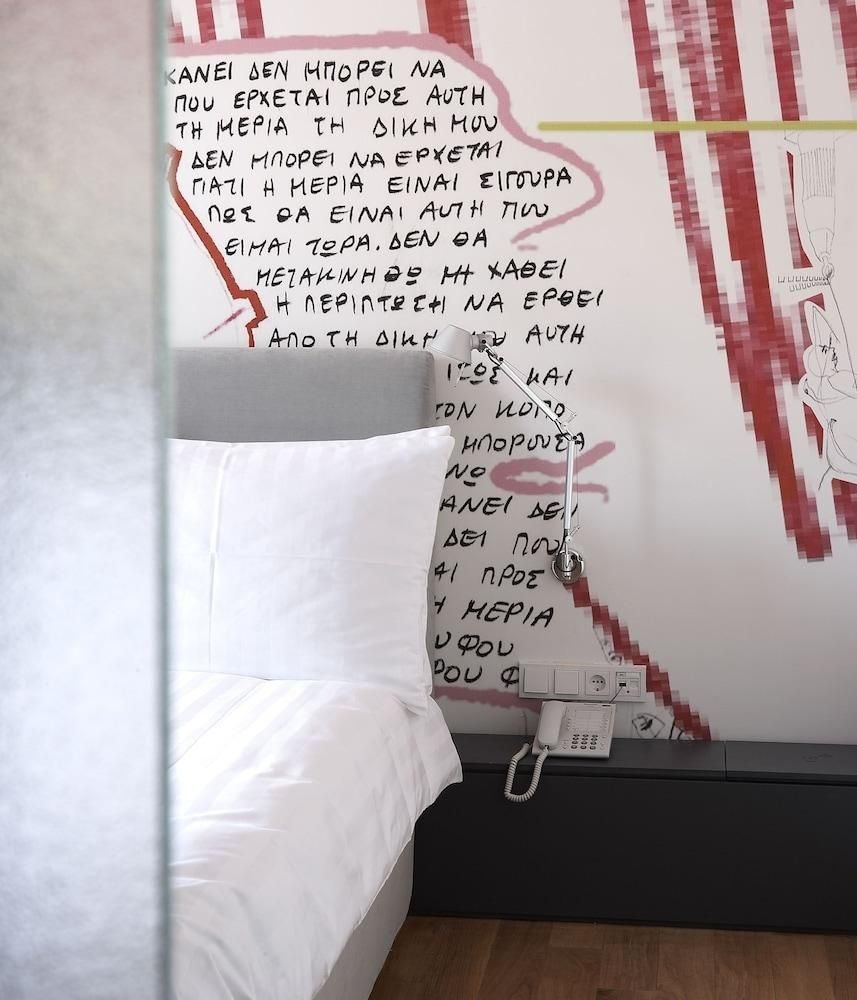 ΚΑΝΕΙ ΔΕΝ ΜΠΟΡΕΙ ΝΑ
ΠΟΥ ΕΡΧΕΤΑΙ ΠΡΟΣ ΑΥΤΗ
ΤΗ ΜΕΡΙΑ ΤΗ ΔΙΚΗ ΜΟΥ
ΔΕΝ ΜΠΟΡΕΙ ΝΑ ΕΡΧΕΤΑΙ
ΓΙΑΤΙ Η ΜΕΡΙΑ ΕΙΝΑΙ ΣΙΓΟΥΡΑ
ΠΩΣ ΘΑ ΕΙΝΑΙ ΑΥΤΗ ΠΟΥ
ΕΙΜΑΙ ΤΩΡΑ. ΔΕΝ ΘΑ
ΜΕΤΑΚΙΝΗΘΩ ΜΗ ΧΑΘΕΙ
Η ΠΕΡΙΠΤΩΣΗ ΝΑ ΕΡΘΕΙ
ΑΠΟ ΤΗ ΔΙΚΗ ΑΥΤΗ
ΚΑΙ
ΚΟΠΟ
ΜΠΟΡΟΥΣΑ
ΝΩ
ΑΝΕΙ ΔΕΝ
ΔΕΙ ΠΟΥ
ΑΙ ΠΡΟΣ
Η ΜΕΡΙΑ
Υ ΦΟΥ
ΡΟΥ Φ